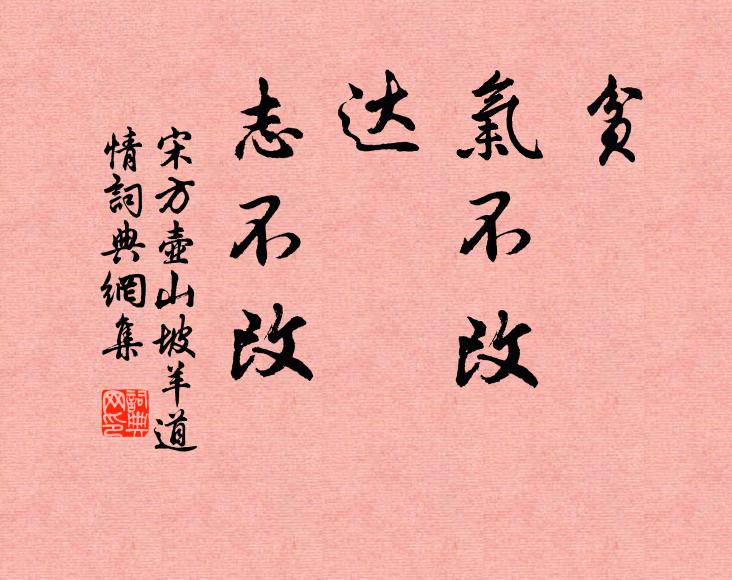 贫
氣不改
达
志不改
宋方壶山坡羊道
情詞典網集
詞典网印